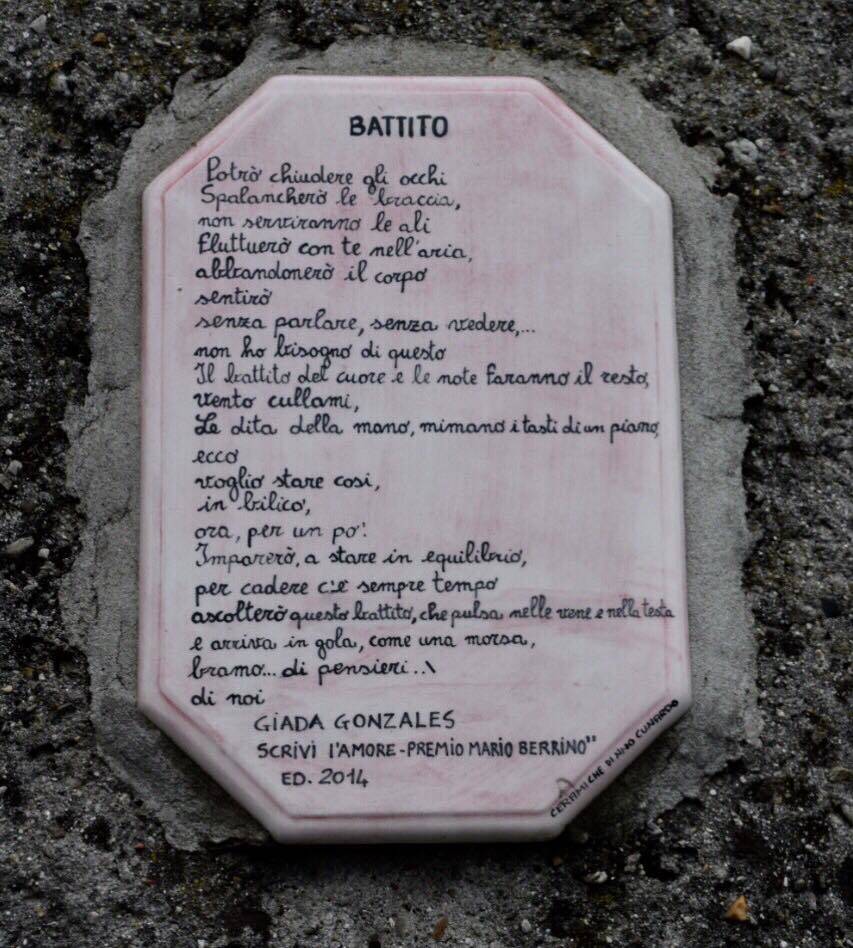 BATTITO
Potrò chiudere gli occhi
Spalancherò le braccia,
non serviranno le ali
Fluttuerò con te nell'aria,
abbandonerò il corpo
sentirò
senza parlare, senza vedere,...
non ho bisogno di questo
Il battito del cuore e le note faranno il resto,
vento cullami,
Le dita della mano, mimano i tasti di un piano,
ecco
voglio stare così,
in bilico,
ora, per un po'.
Imparerò, a stare in equilibrio,
per cadere c'è sempre tempo
ascolterò questo battito, che pulsa nelle vene e nella testa
e arriva in gola, come una morsa,
bramo... di pensieri..\
di noi
GIADA GONZALES
SCRIVI l'AMORE-PREMIO MARIO BERRINO"
ED. 2014
CERAMICHE DI NINO CUNARDO